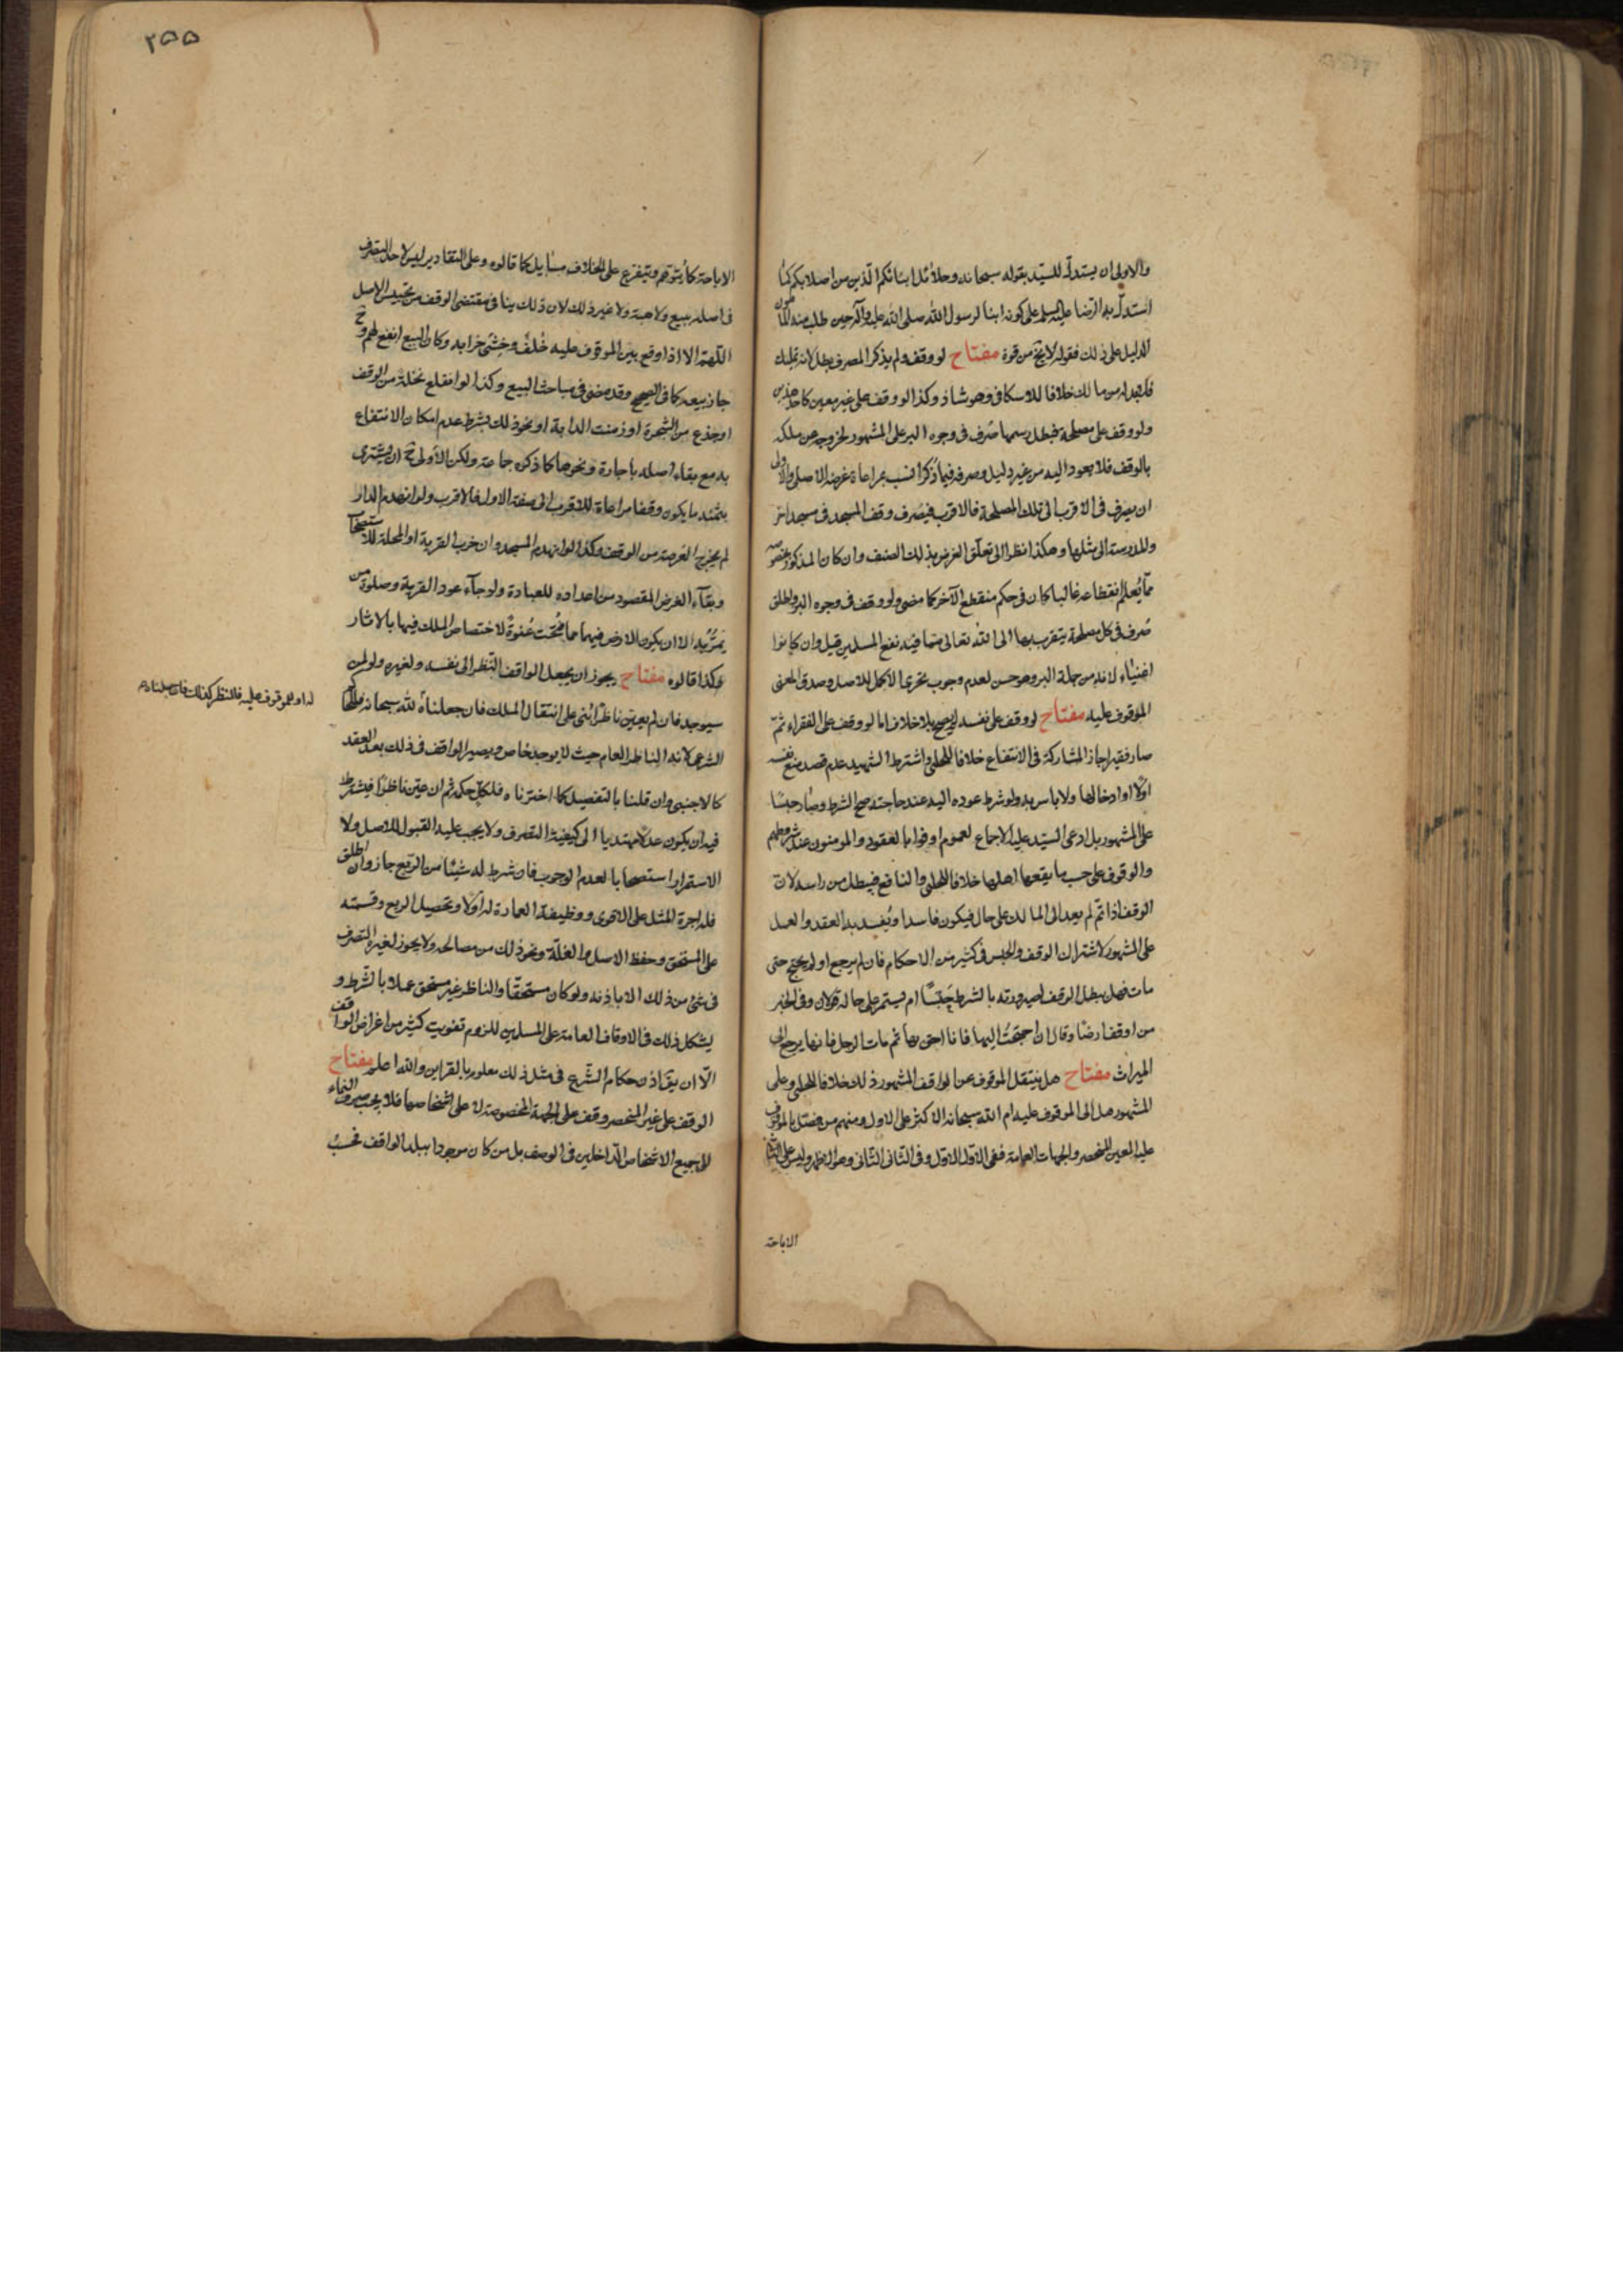 والاولى ان يستدل للسيد بقوله سبحانه وحلائل ابنائكم الذين من اصلابكم كما
استدل به الرضا عليه السلم على كونه ابنا لرسول الله صلى الله عليه وآله حين طلب منه المامون
الدليل على ذلك فقوله لا يخ من قوة مفتاح لو وقف ولم يذكر المصرف بطل لانه تمليك
فلابد له من مالك خلافا للاسكافى وهو شاذ وكذا لو وقف على غير معين كاحد هذين
ولو وقف على مصلحة فبطل رسمها صُرف فى وجوه البر على المشهور لخروجه عن ملكه
بالوقف فلا يعود اليه من غير دليل وصرفه فيما ذُكر انسب بمراعاة غرضه الاصلى والاولى
ان يصرف فى الاقرب الى تلك المصلحة فالاقرب فيصرف وقف المسجد فى مسجد اخر
والمدرسة الى مثلها وهكذا نظرا الى تعلق الغرض بذلك الصنف وان كان المذكور بخصوصه
مما يُعلم انقطاعه غالبا كان فى حكم منقطع الآخر كما مضى ولو وقف فى وجوه البر واطلق
صُرف فى كل مصلحة يتقرب بها الى الله تعالى مما فيه نفع المسلمين قيل وان كانوا
اغنياء لانه من جملة البر وهو حسن لعدم وجوب تحرى الاكمل للاصل وصدق المعنى
الموقوف عليه مفتاح لو وقف على نفسه لم يصح بلا خلاف اما لو وقف على الفقراء ثم
صار فقيرا جاز المشاركة فى الانتفاع خلافا للحلى واشترط الشهيد عدم قصد منع نفسه
اولا او ادخالها ولا باس به ولو شرط عوده اليه عند حاجته صح الشرط وصار حبسًا
على المشهور بل ادعى السيد عليه الاجماع لعموم اوفوا بالعقود والمومنون عند شروطهم
والوقوف على حسب ما يقفها اهلها خلافا للحلى والنافع فيبطل من راسه لان
الوقف اذا تم لم يعد الى المالك على حال فيكون فاسدا ويُفسد به العقد والعمل
على المشهور لاشتراك الوقف والحبس فى كثير من الاحكام فان لم يرجع او لم يحتج حتى
مات فهل يبطل الوقف لصيرورته بالشرط حَبْسًا ام يستمر على حاله قولان وفى الخبر
من اوقف ارضا وقال ان احتجت اليها فانا احق بها ثم مات الرجل فانها يرجع الى
الميراث مفتاح هل ينتقل الموقوف عن الواقف المشهور ذلك خلافا للحلى وعلى
المشهور هل الى الموقوف عليه ام الله سبحانه الاكثر على الاول ومنهم من فصل بالموقوف
عليه المعين المنحصر والجهات العامة ففى الاول الاول وفى الثانى الثانى وهو الاظهر وليس على الثانى
الاباحة
٢٥٥
الاباحة كما يُتوهم ويتفرع على الخلاف مسايل كما قالوه وعلى التقادير ليس لاحد التصرف
فى اصله ببيع ولا هبة ولا غير ذلك لان ذلك ينافى مقتضى الوقف من تحبيس الاصل
اللهم الا اذا وقع بين الموقوف عليه خُلف وخشى خرابه وكان البيع انفع لهم وح
جاز بيعه كما فى الصحيح وقد مضى فى مباحث البيع وكذا لو انقلع نخلة من الوقف
او جذع من الشجرة او زمنت الدابة او نحو ذلك بشرط عدم امكان الانتفاع
به مع بقاء اصله باجارة ونحوها كما ذكره جماعة ولكن الاولى ح ان يشترى
بثمنه ما يكون وقفا مراعاة للاقرب الى صفة الاول فالاقرب ولو انهدم الدار
لم يخرج العرصة من الوقف وكذا لو انهدم المسجد وان خرب القرية او المحلة للاستصحاب
وبقاء الغرض المقصود من اعداده للعبادة ولرجآء عود القرية وصلوة من
يَمُرُّ به الا ان يكون الارض فيهما مما فُتحت عُنوةً لاختصاص الملك فيها بالاثار
هكذا قالوه مفتاح يجوز ان يجعل الواقف النظر الى نفسه ولغيره ولو لمن
سيوجد فان لم يعين ناظرا بُنى على انتقال الملك فان جعلناه لله سبحانه فللحاكم
الشرعى لانه الناظر العام حيث لا يوجد خاص ويصير الواقف فى ذلك بعد العقد
كالاجنبى وان قلنا بالتفصيل كما اخترناه فلكل حكمه ثم ان عين ناظرا فيشترط
فيه ان يكون عدلا مهتديا الى كيفية التصرف ولا يجب عليه القبول للاصل ولا
الاستمرار استصحابا لعدم الوجوب فان شرط له شيئا من الريع جاز وان اطلق
فله اجرة المثل على الاقوى ووظيفته العمارة له اولا وتحصيل الريع وقسمته
على المستحق وحفظ الاصل والغلة ونحو ذلك من مصالحه ولا يجوز لغيره التصرف
فى شئ من ذلك الا باذنه ولو كان مستحقا والناظر غير مستحق عملا بالشرط و
يشكل ذلك فى الاوقاف العامة على المسلمين للزوم تفويت كثير من اغراض الواقف
الا ان يقال اذن حكام الشرع فى مثل ذلك معلوم بالقراين والله اعلم مفتاح
الوقف على غير المنحصر وقف على الجهة المخصوصة لا على اشخاصها فلا يجب صرف النماء
الى جميع الاشخاص الداخلين فى الوصف بل من كان موجودا ببلد الواقف فحسبُ
له او للموقوف عليه فالنظر كذلك فان جعلناه